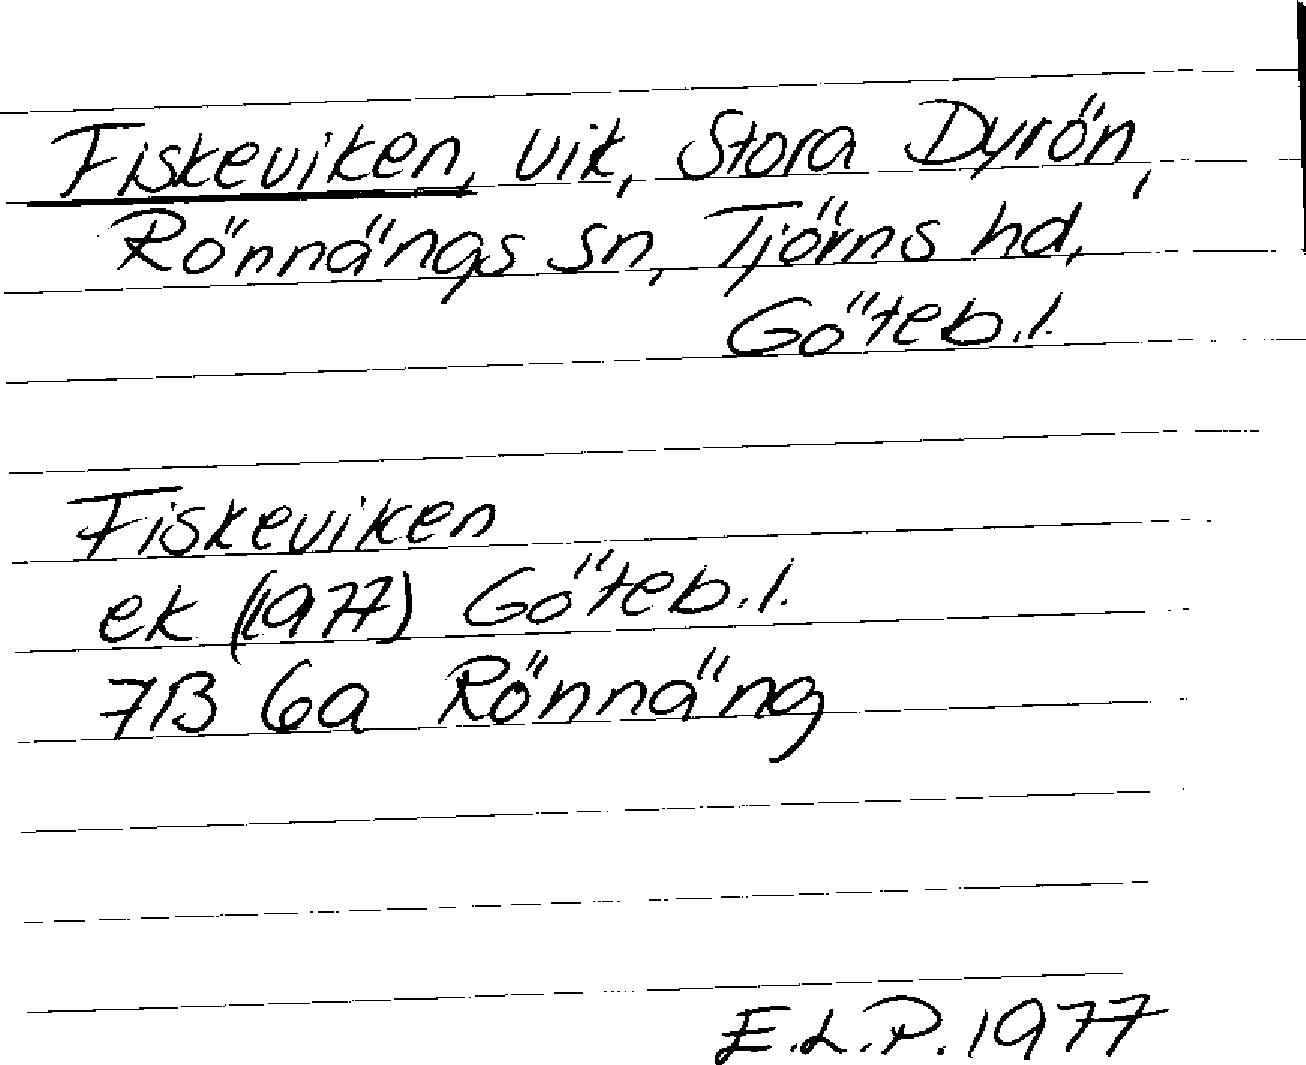 Fiskeviken, vik, Stora Dyrön,
Rönnängs sn, Tjörns hd,
Göteb.l.
Fiskeviken
ek (1977) Göteb.l.
7B 6a Rönnäng
E.L.P. 1977